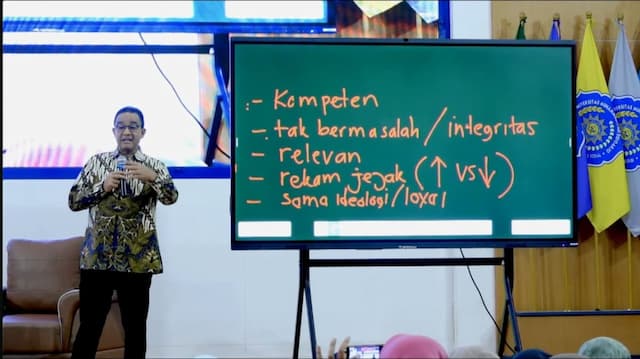 - Kompeten
- tak bermasalah / integritas
- relevan
- rekam jejak (↑ vs ↓)
- sama Ideologi / loyal